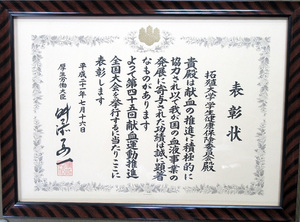 表彰状
拓殖大学学友会献血推進委員会殿
貴殿は献血の推進に積極的に
協力され以て我が国の血液事業の
発展に寄与された功績は誠に顕著
なものがあります
よって第四十五回献血運動推進
全国大会を挙行するに当たりここに
表彰します
平成二十一年七月十六日
厚生労働大臣